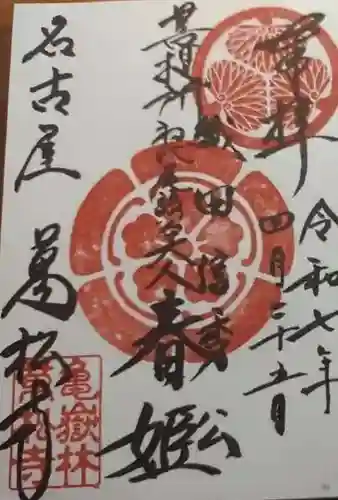 奉拝
令和七年
四月二十五日
織田信秀公
春姫
名古屋
萬松寺
亀嶽林
萬松寺